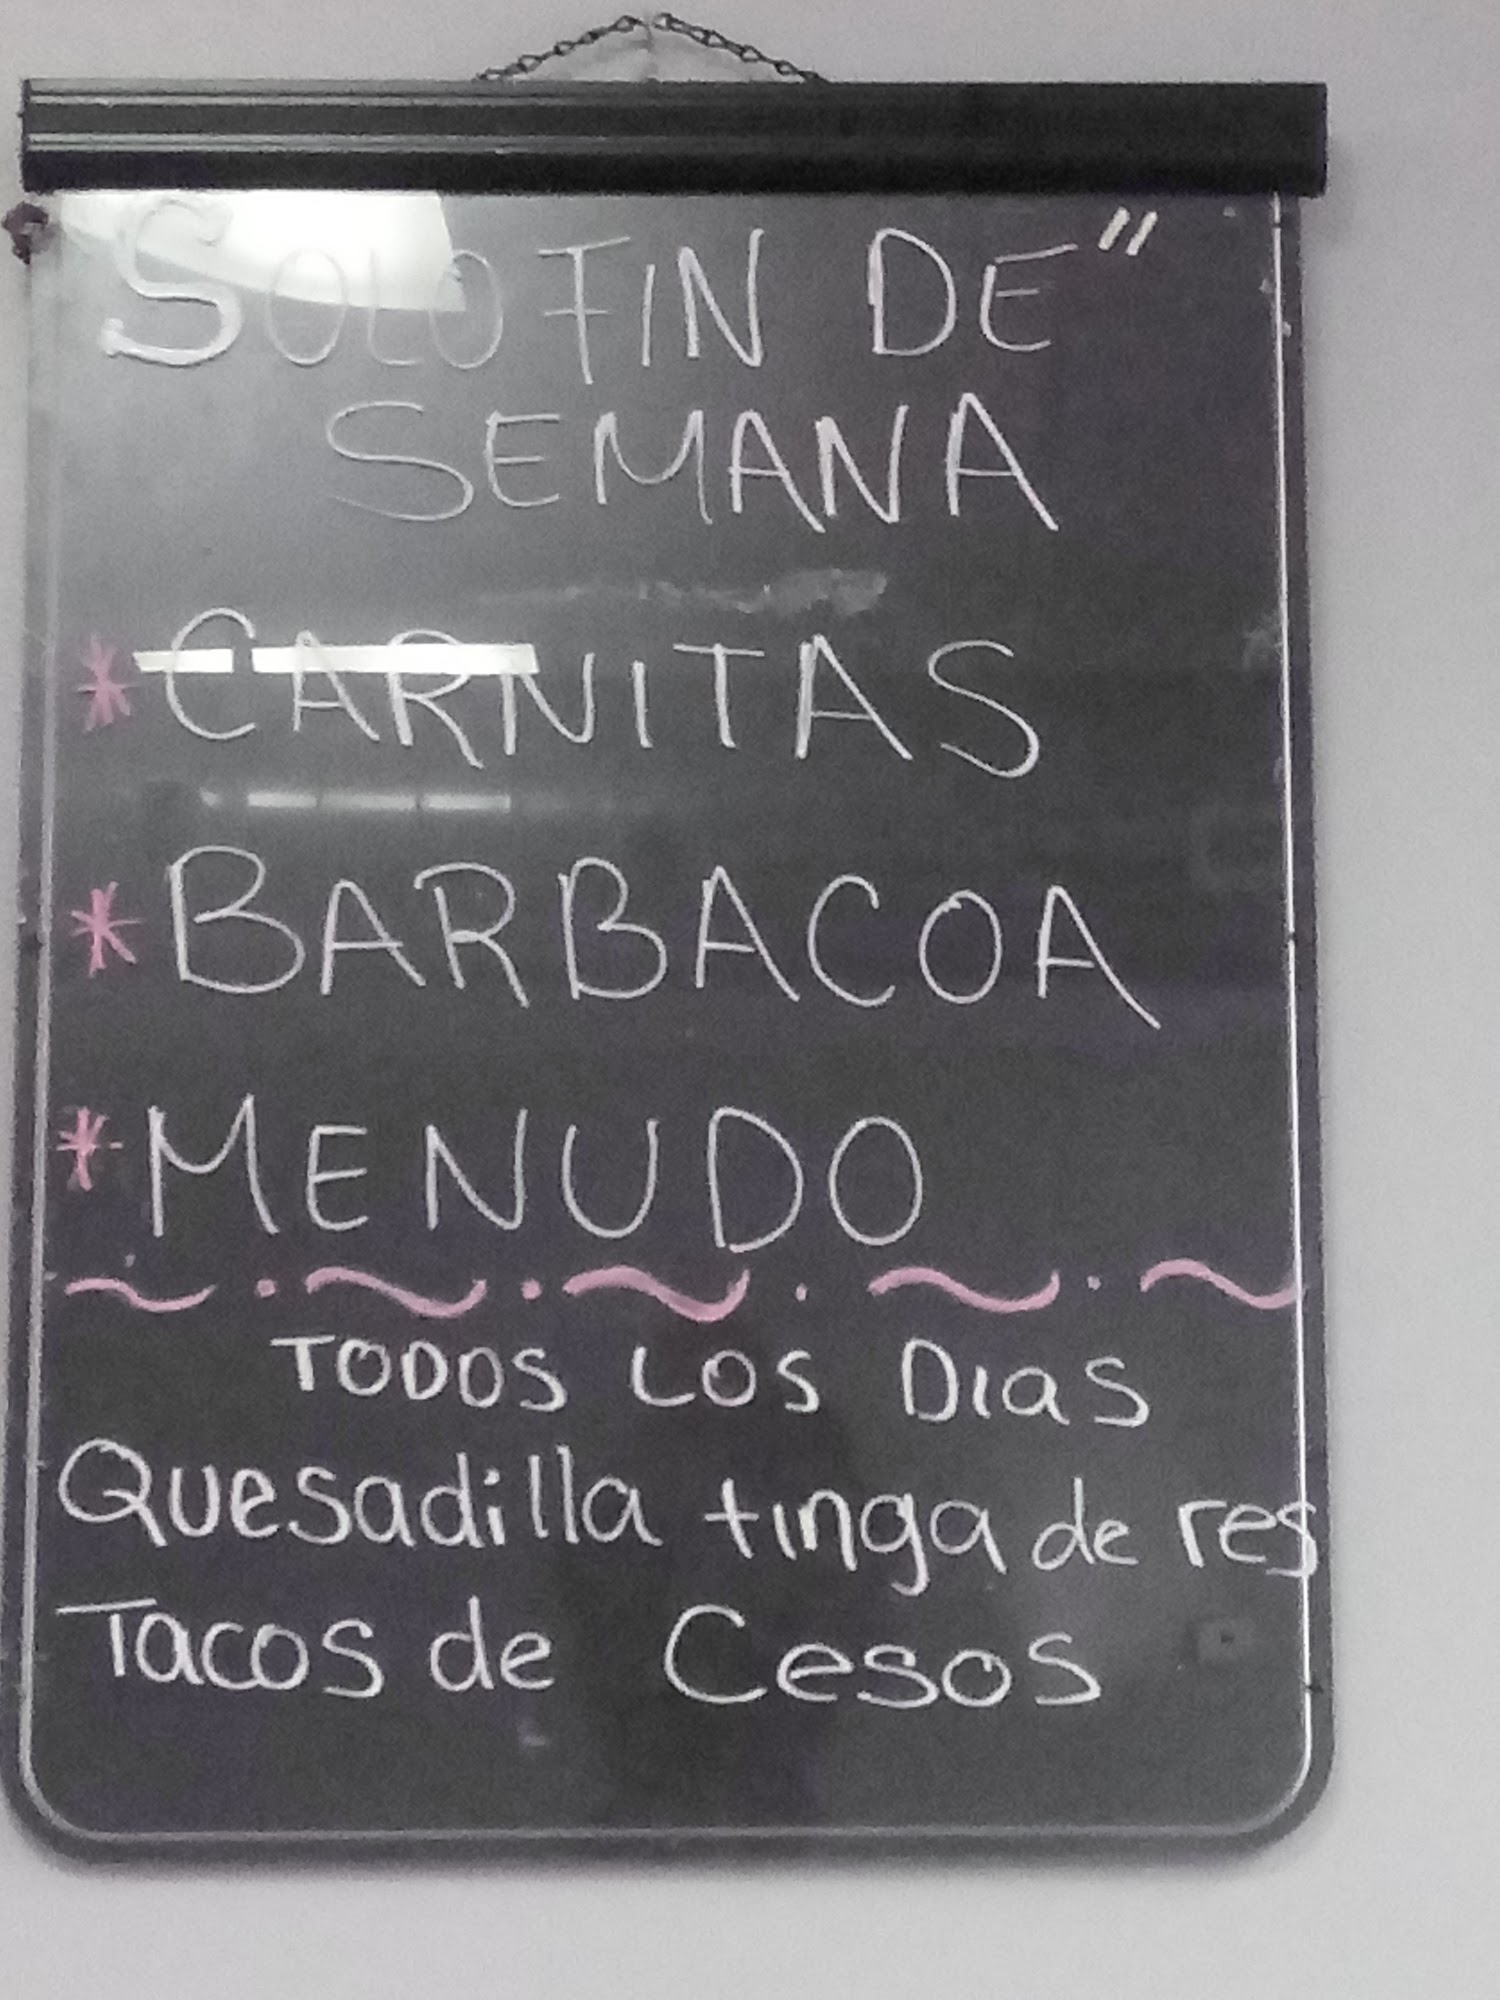 SOLO FIN DE"
SEMANA
* CARNITAS
* BARBACOA
* MENUDO
~ . ~ . ~ . ~ . ~
TODOS LOS DIaS
Quesadilla tinga de res
Tacos de Cesos